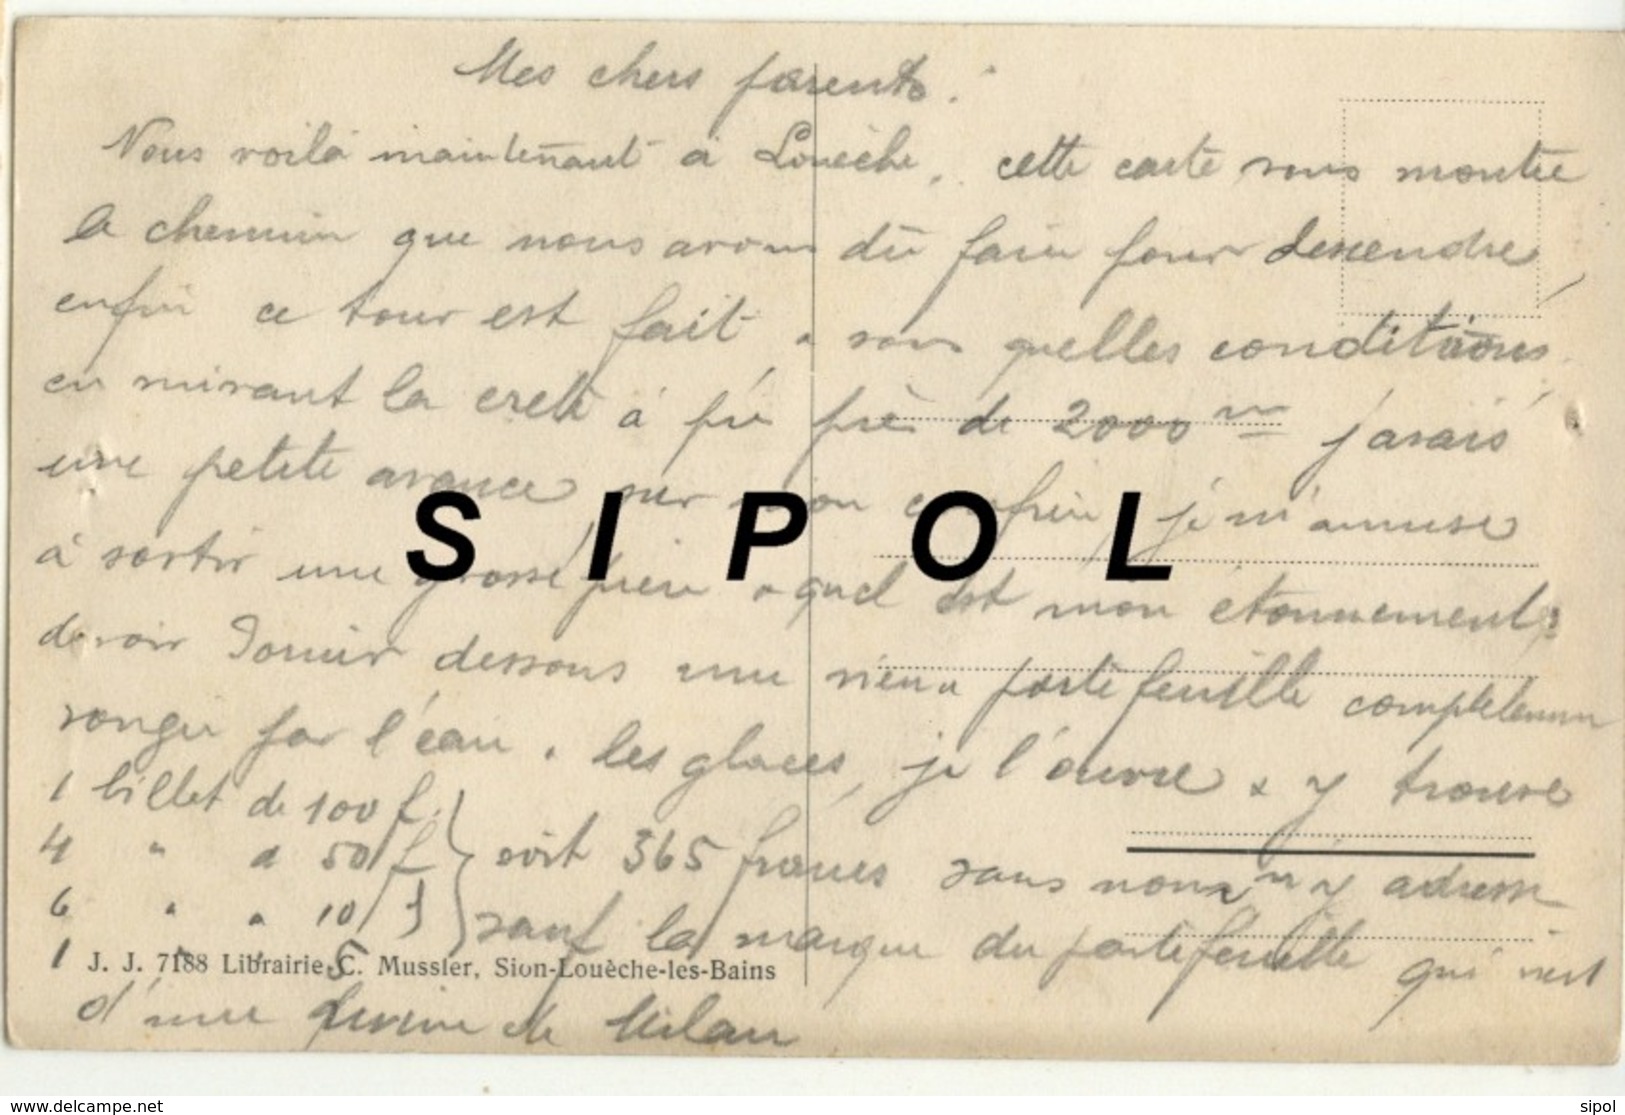 Mes chers parents.
Nous voilà maintenant à Louèche, cette carte vous montre
le chemin que nous avons dû faire pour descendre,
enfin ce tour est fait & sous quelles conditions.
en suivant la crete à peu près de 2000 m j'avais
une petite avance sur mon je m'amuse
à sortir une grosse pierre & quel est mon étonnement:
de voir dessous une vieux portefeuille completemen
ronger par l'eau & les glaces, je l'ouvre & y trouve
1 billet de 100 f.
4 " à 50 f
6 " " 10 f
soit 365 francs sans nom ni adresse
sauf la marque du portefeuille qui vient
1 " " 5
J. J. 7188 Librairie C. Mussler, Sion-Louèche-les-Bains
d'une de Milan
SIPOL
www.delcampe.net
sipol